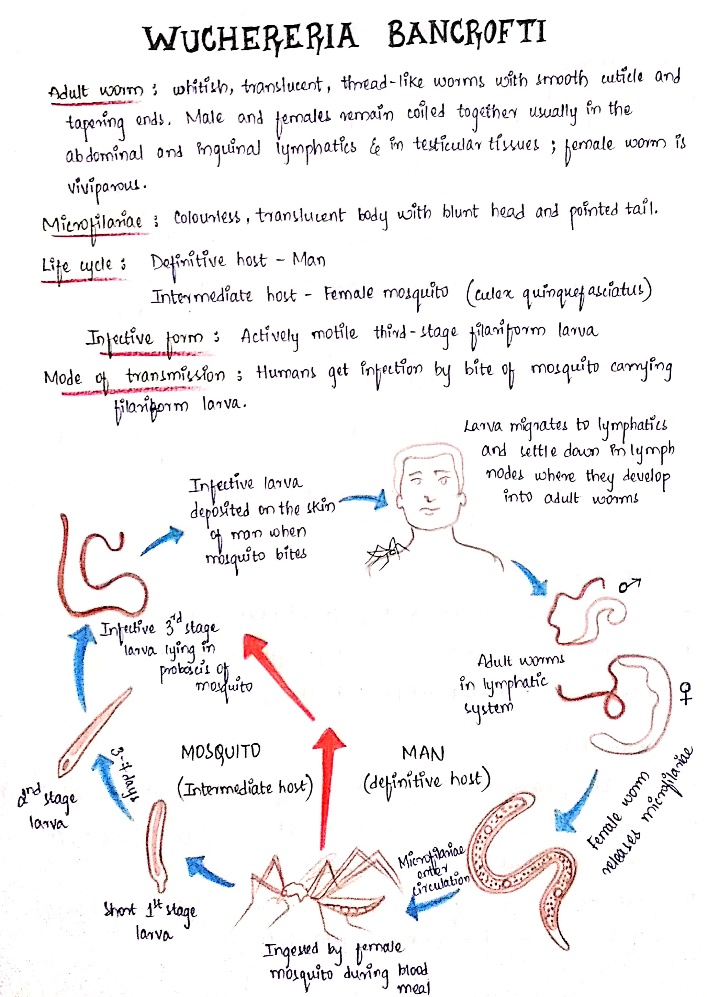 WUCHERERIA BANCROFTI
Adult worm : whitish, translucent, thread-like worms with smooth cuticle and
tapering ends. Male and females remain coiled together usually in the
abdominal and inguinal lymphatics & in testicular tissues ; female worm is
viviparous.
Microfilariae : Colourless, translucent body with blunt head and pointed tail.
Life cycle : Definitive host - Man
Intermediate host - Female mosquito (culex quinquefasciatus)
Infective form : Actively motile third-stage filariform larva
Mode of transmission : Humans get infection by bite of mosquito carrying
filariform larva.
Larva migrates to lymphatics
and settle down in lymph
nodes where they develop
into adult worms
Infective larva
deposited on the skin
of man when
mosquito bites
Infective 3rd stage
larva lying in
proboscis of
mosquito
♂
Adult worms
in lymphatic
system
♀
MOSQUITO
(Intermediate host)
MAN
(definitive host)
3-4 days
2nd stage
larva
Female worm
releases microfilariae
Microfilariae
enter
circulation
Short 1st stage
larva
Ingested by female
mosquito during blood
meal